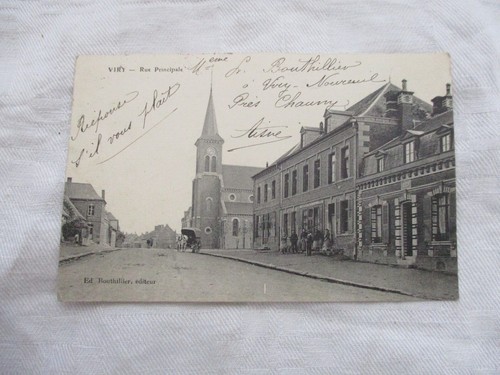 VIRY — Rue Principale
Mme L. Bouthillier
à Viry-Noureuil
Près Chauny
Aisne
Réponse
S'il vous plaît
Ed. Bouthillier, éditeur